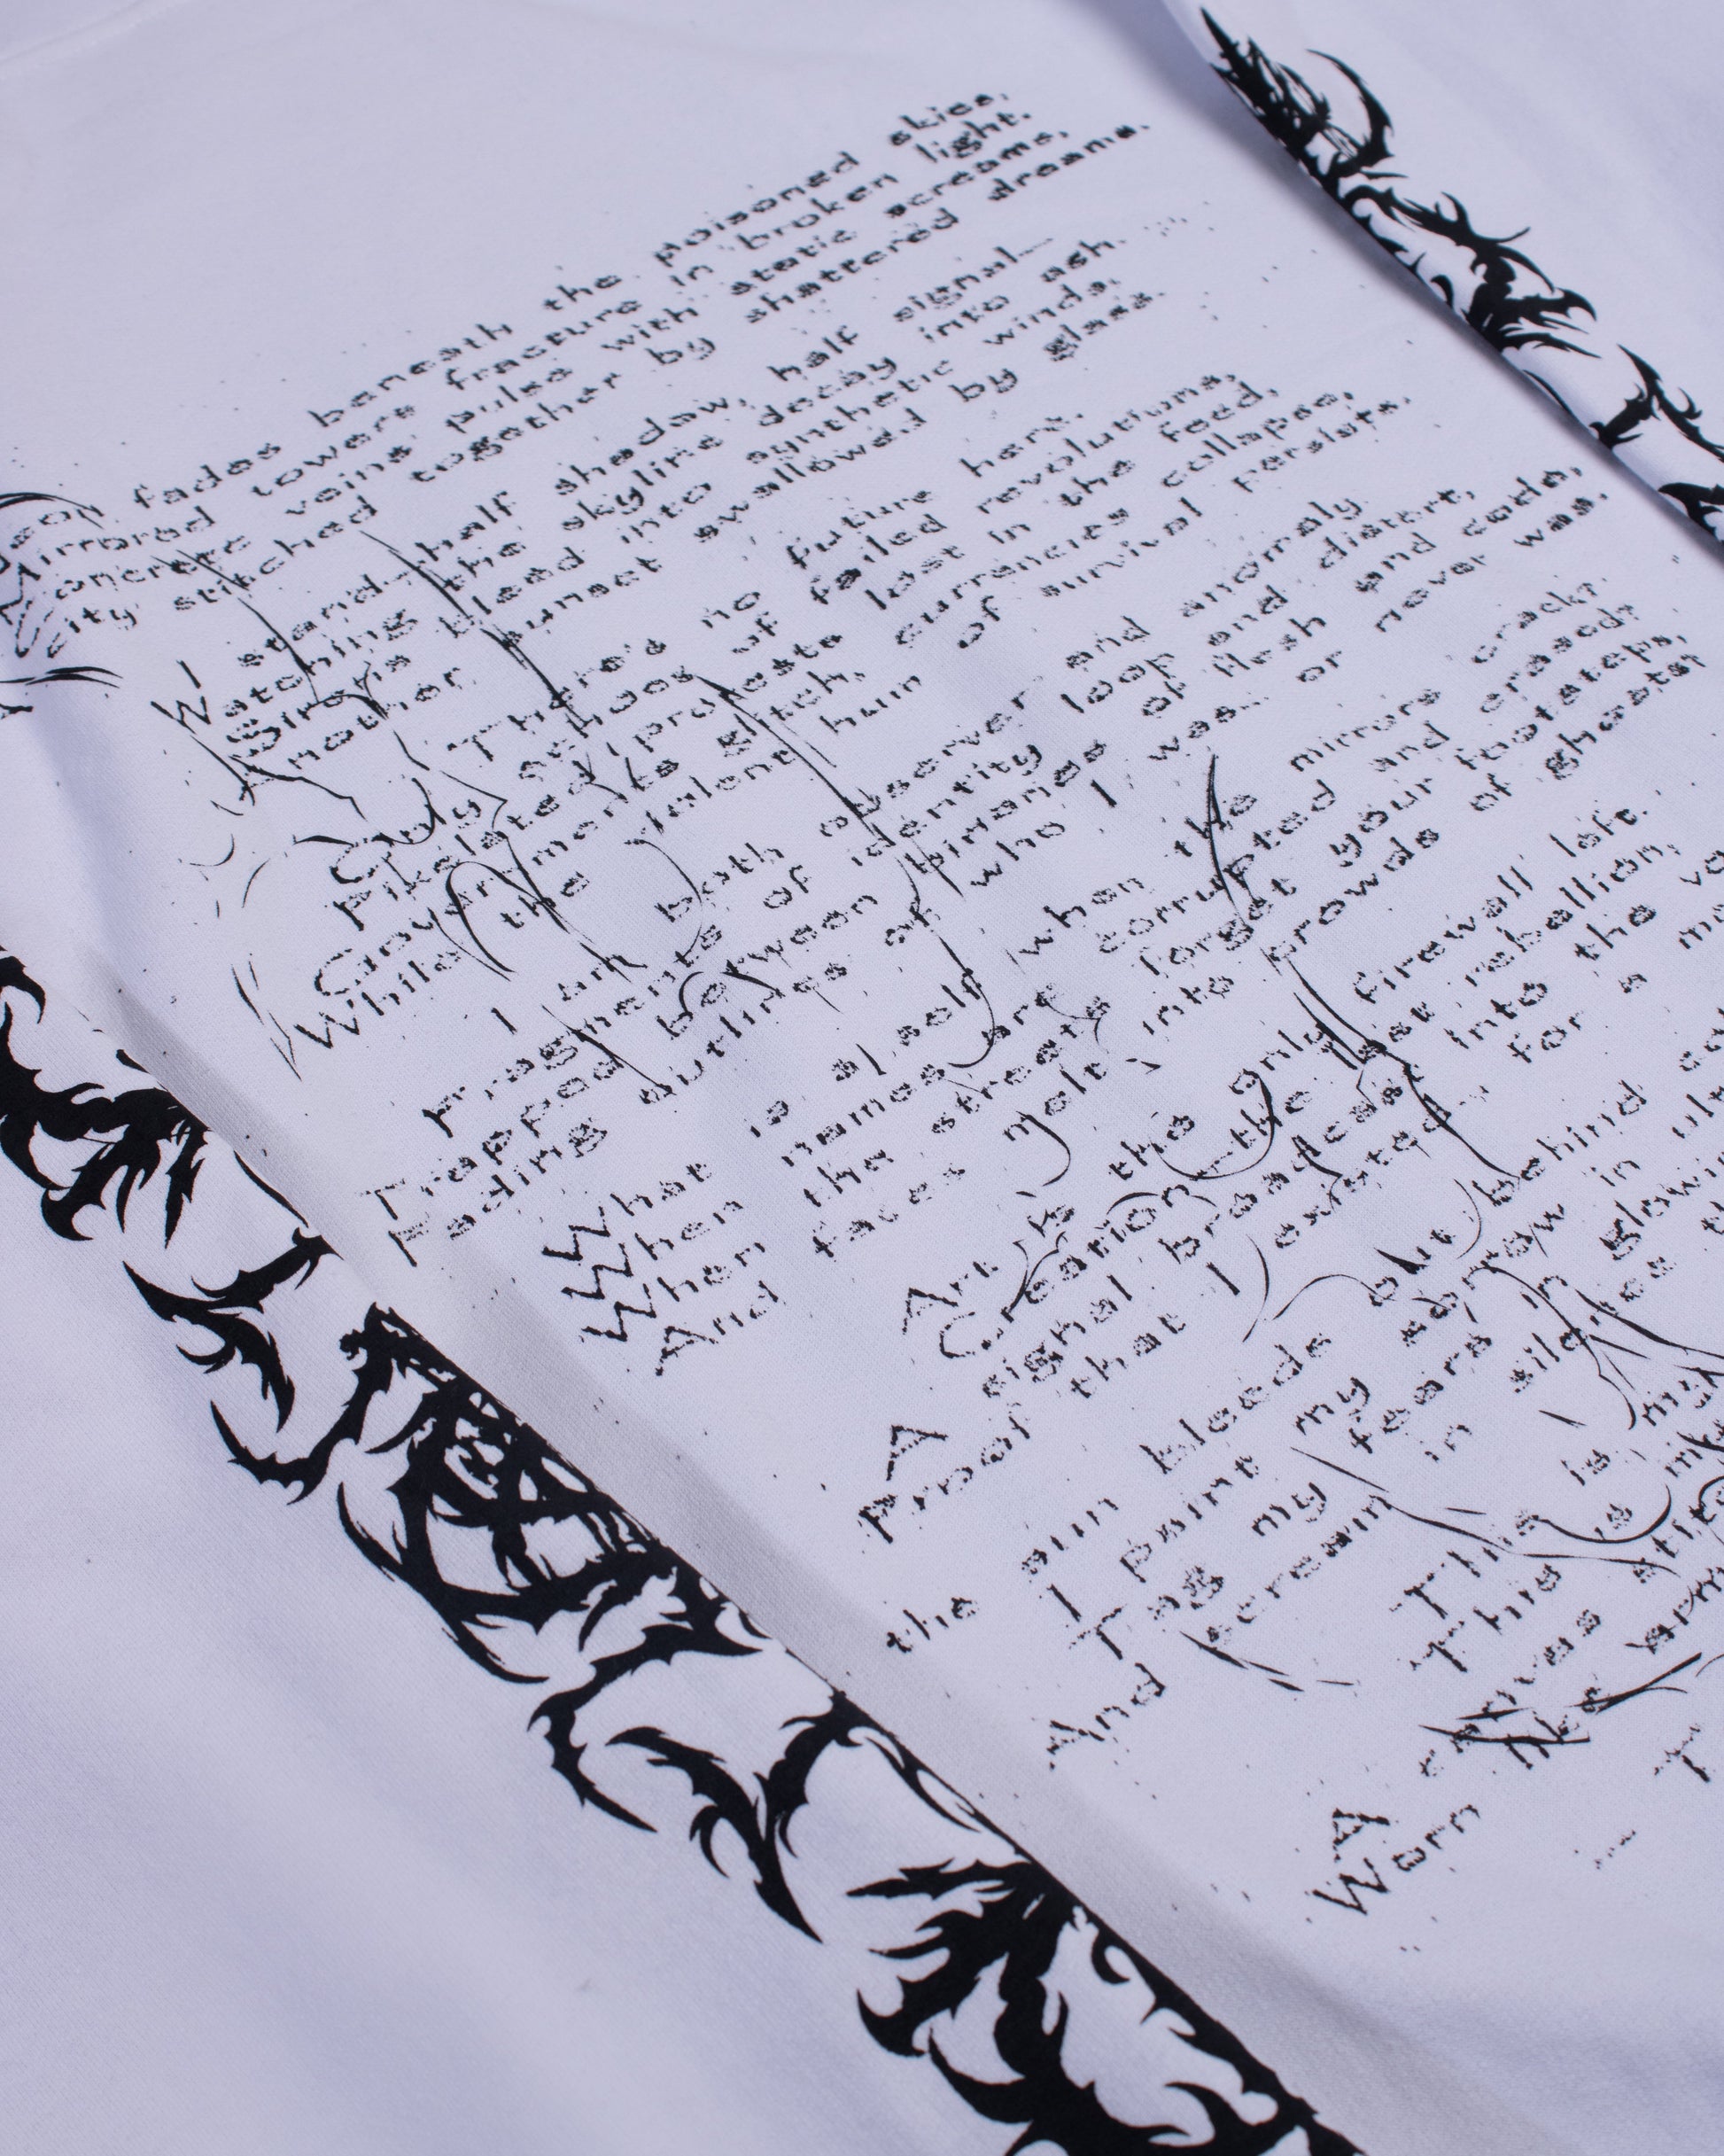 Neon fades beneath the poisoned skies,
Mirrored towers fracture in broken light.
Concrete veins pulse with static screams,
City stitched together by shattered dreams.
I stand—half shadow, half signal—
Watching the skyline decay into ash.
Sirens bleed into synthetic winds,
Another sunset swallowed by glass.
There's no future here.
Only echoes of failed revolutions,
Pixelated protests lost in the feed,
Governments glitch, currencies collapse,
While the violent hum of survival persists.
I am both observer and anomaly.
Fragments of identity loop and distort,
Trapped between binaries of flesh and code,
Fading outlines of who I was… or never was.
What is a self when the mirrors crack?
When names are corrupted and erased?
When the streets forget your footsteps,
And faces melt into crowds of ghosts?
Art is the only firewall left.
Creation, the last rebellion,
A signal broadcast into the
Proof that I existed for a
the sun bleeds out behind
I paint my sorrow in
Tag my fears in glowing
And scream in
This is
This is
A
Worn